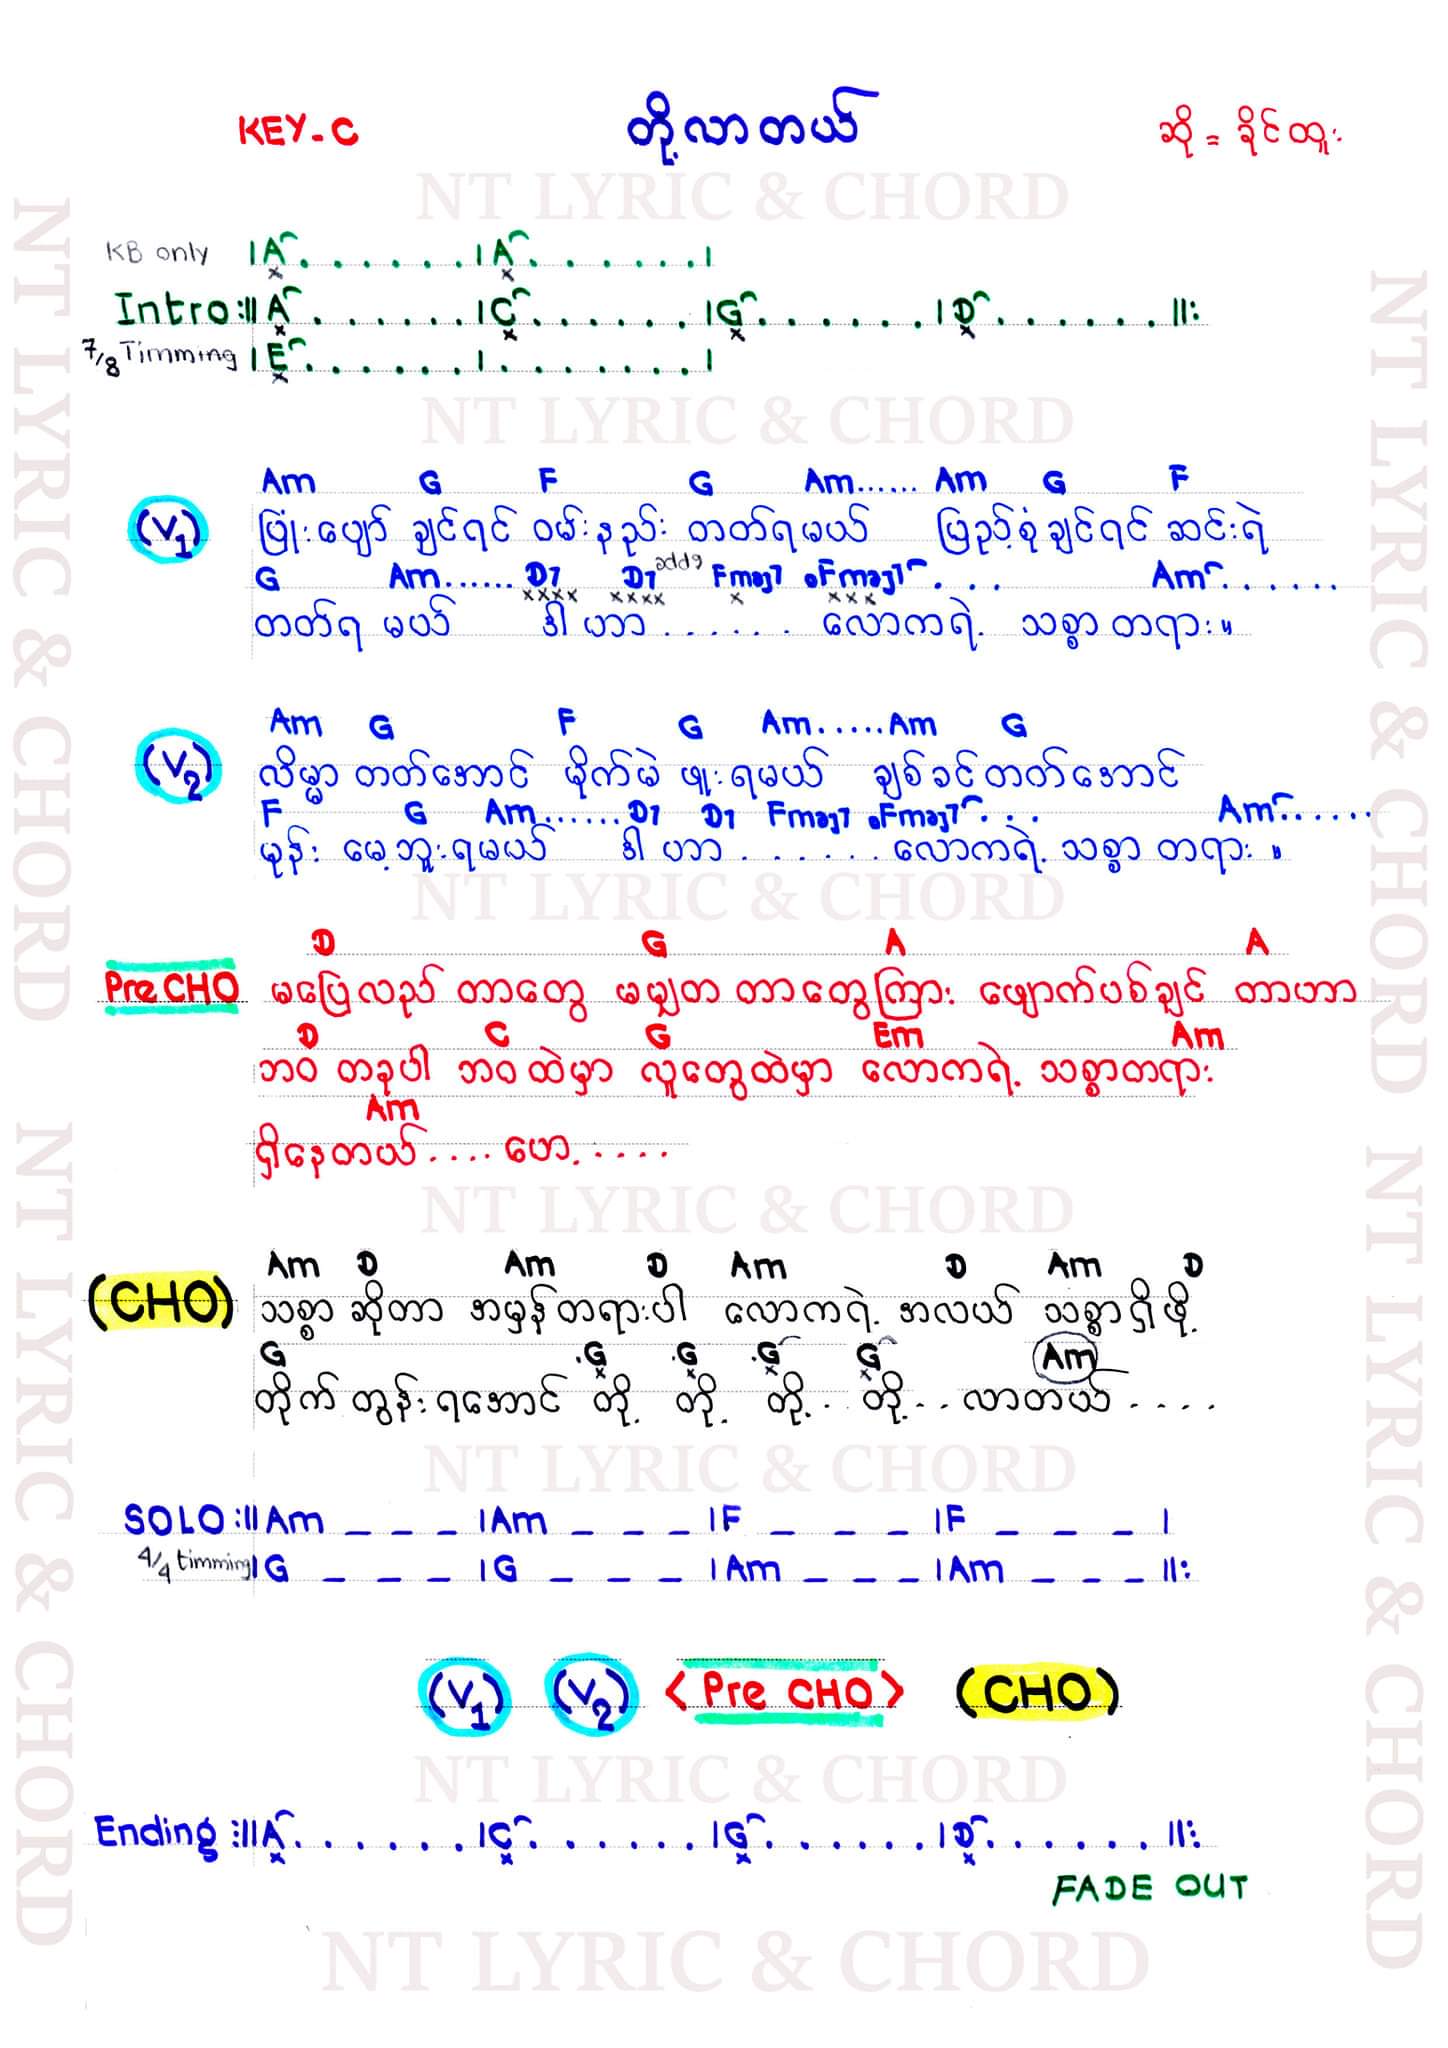 KEY-C တို့လာတယ် ဆို = ခိုင်ထူး
NT LYRIC & CHORD
KB only |A.......|A.......|
Intro :||A.......|C.......|G.......|D.......||:
7/8 Timming |E.......|........|
NT LYRIC & CHORD
Am G F G Am...... Am G F
(V1) ပြုံးပျော် ချင်ရင် ဝမ်းနည်း တတ်ရမယ် ပြည့်စုံချင်ရင် ဆင်းရဲ
G Am...... D7 D7add9 Fmaj7 Fmaj7... Am.......
xxxx xxxx x xxx
တတ်ရ မယ် ဒါ ဟာ ...... လောကရဲ့ သစ္စာ တရား။
Am G F G Am.....Am G
(V2) လိမ္မာ တတ်အောင် မိုက်မဲ ဖူးရမယ် ချစ်ခင်တတ်အောင်
F G Am......D7 D7 Fmaj7 Fmaj7... Am......
မုန်း မေ့ဘူးရမယ် ဒါ ဟာ ...... လောကရဲ့ သစ္စာ တရား ။
NT LYRIC & CHORD
D G A A
Pre CHO မပြေလည် တာတွေ မမျှတ တာတွေကြား ဖျောက်ပစ်ချင် တာဟာ
D C G Em Am
ဘဝ တခုပါ ဘဝထဲမှာ လူတွေထဲမှာ လောကရဲ့ သစ္စာတရား
Am
ရှိနေတယ်.... ဟေ့.....
NT LYRIC & CHORD
Am D Am D Am D Am D
(CHO) သစ္စာ ဆိုတာ အမှန်တရားပါ လောကရဲ့ အလယ် သစ္စာရှိဖို့
G .G .G .G G Am
တိုက် တွန်းရအောင် တို့ တို့ တို့.. တို့... လာတယ်....
NT LYRIC & CHORD
SOLO :||Am _ _ _ |Am _ _ _ |F _ _ _ |F _ _ _ |
4/4 timming |G _ _ _ |G _ _ _ |Am _ _ _ |Am _ _ _ ||:
(V1) (V2) <Pre CHO> (CHO)
NT LYRIC & CHORD
Ending :||A.......|C.......|G.......|D.......||:
FADE OUT
NT LYRIC & CHORD
NT LYRIC & CHORD
NT LYRIC & CHORD
NT LYRIC & CHORD
NT LYRIC & CHORD